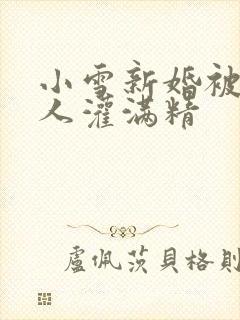 小雪新婚被
人灌满精
盧佩茨貝格則